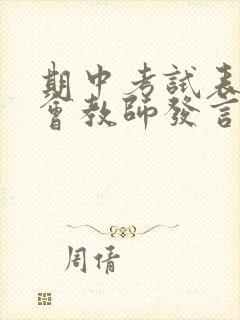 期中考試表
會教師發言
周倩